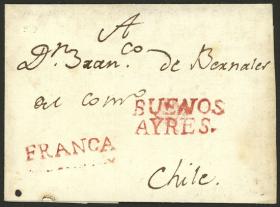 A
Dn. Franco. de Bernales
del Como.
BUENOS
AYRES.
FRANCA
Chile.